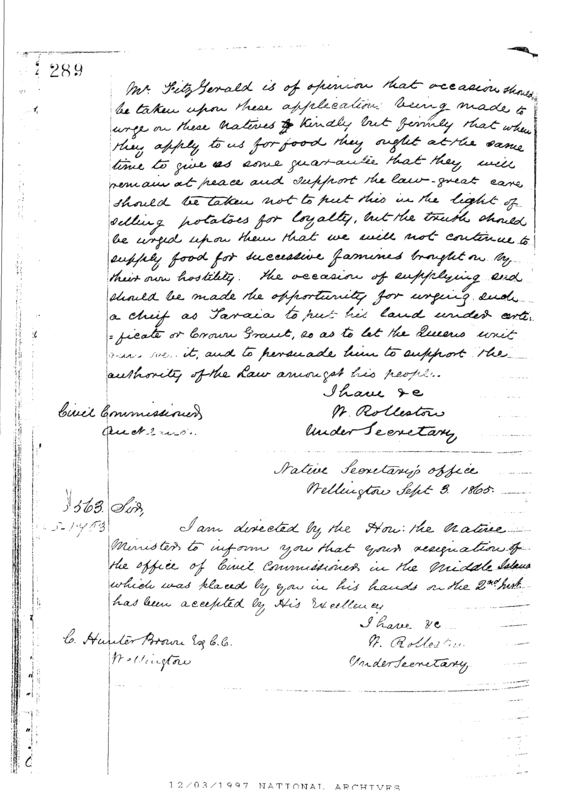 289
Mr. FitzGerald is of opinion that occasion should
be taken upon these application being made to
urge on these Natives kindly but firmly that when
they apply to us for food they ought at the same
time to give us some guarantee that they will
remain at peace and support the law - great care
should be taken not to put this in the light of
selling potatoes for loyalty, but the truth should
be urged upon them that we will not continue to
supply food for successive famines brought on by
their own hostility. The occasion of supplying
should be made the opportunity for urging such
a chief as Taraia to put his land under certi
=ficate or Crown Grant, so as to let the Queens writ
it, and to persuade him to support the
authority of the Law amongst his people.
I have &c
Civil Commissioner W. Rolleston
Auckland. Under Secretary
Native Secretary's office
Wellington Sept 3. 1865.
563 Sir,
I am directed by the Hon: the Native
Minister to inform you that your resignation of
the office of Civil Commissioner in the Middle Island
which was placed by you in his hands on the 2nd Inst.
has been accepted by His Excellency
I have &c
C. Hunter Brown Esq C.C. W. Rolleston
Wellington Under Secretary
12/03/1997 NATIONAL ARCHIVES